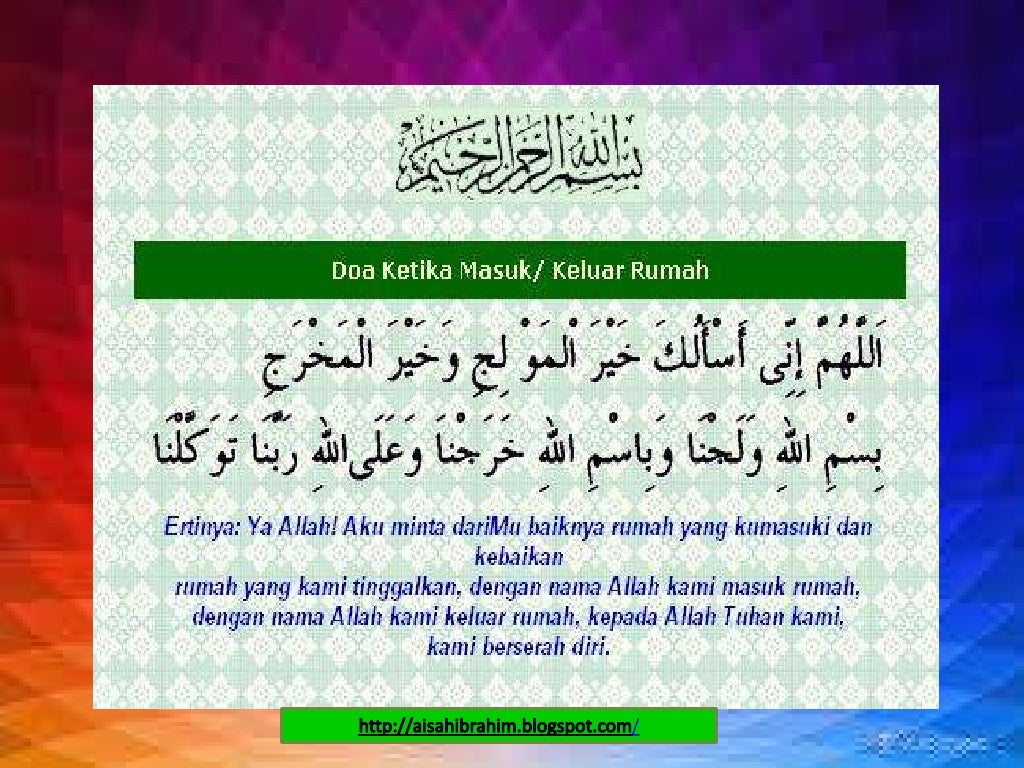 بسم الله الرحمن الرحيم
Doa Ketika Masuk/ Keluar Rumah
اَللّٰهُمَّ إِنِّى أَسْأَلُكَ خَيْرَ الْمَوْلِجِ وَخَيْرَ الْمَخْرَجِ
بِسْمِ اللهِ وَلَجْنَا وَبِاسْمِ اللهِ خَرَجْنَا وَعَلَى اللهِ رَبِّنَا تَوَكَّلْنَا
Ertinya: Ya Allah! Aku minta dariMu baiknya rumah yang kumasuki dan
kebaikan
rumah yang kami tinggalkan, dengan nama Allah kami masuk rumah,
dengan nama Allah kami keluar rumah, kepada Allah Tuhan kami,
kami berserah diri.
http://aisahibrahim.blogspot.com/